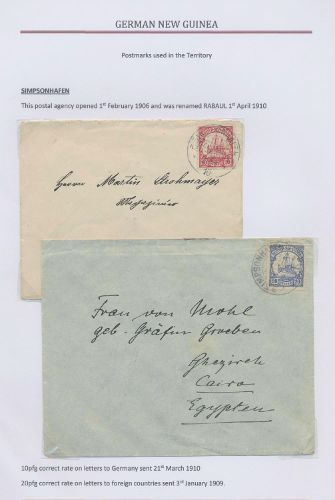 GERMAN NEW GUINEA
Postmarks used in the Territory
SIMPSONHAFEN
This postal agency opened 1st February 1906 and was renamed RABAUL 1st April 1910
Herrn Martin Strohmayer
SIMPSONHAFEN
Frau von Mohl
geb. Gräfin Groeben
Ghezireh
Cairo
Egypten
10pfg correct rate on letters to Germany sent 21st March 1910
20pfg correct rate on letters to foreign countries sent 3rd January 1909.